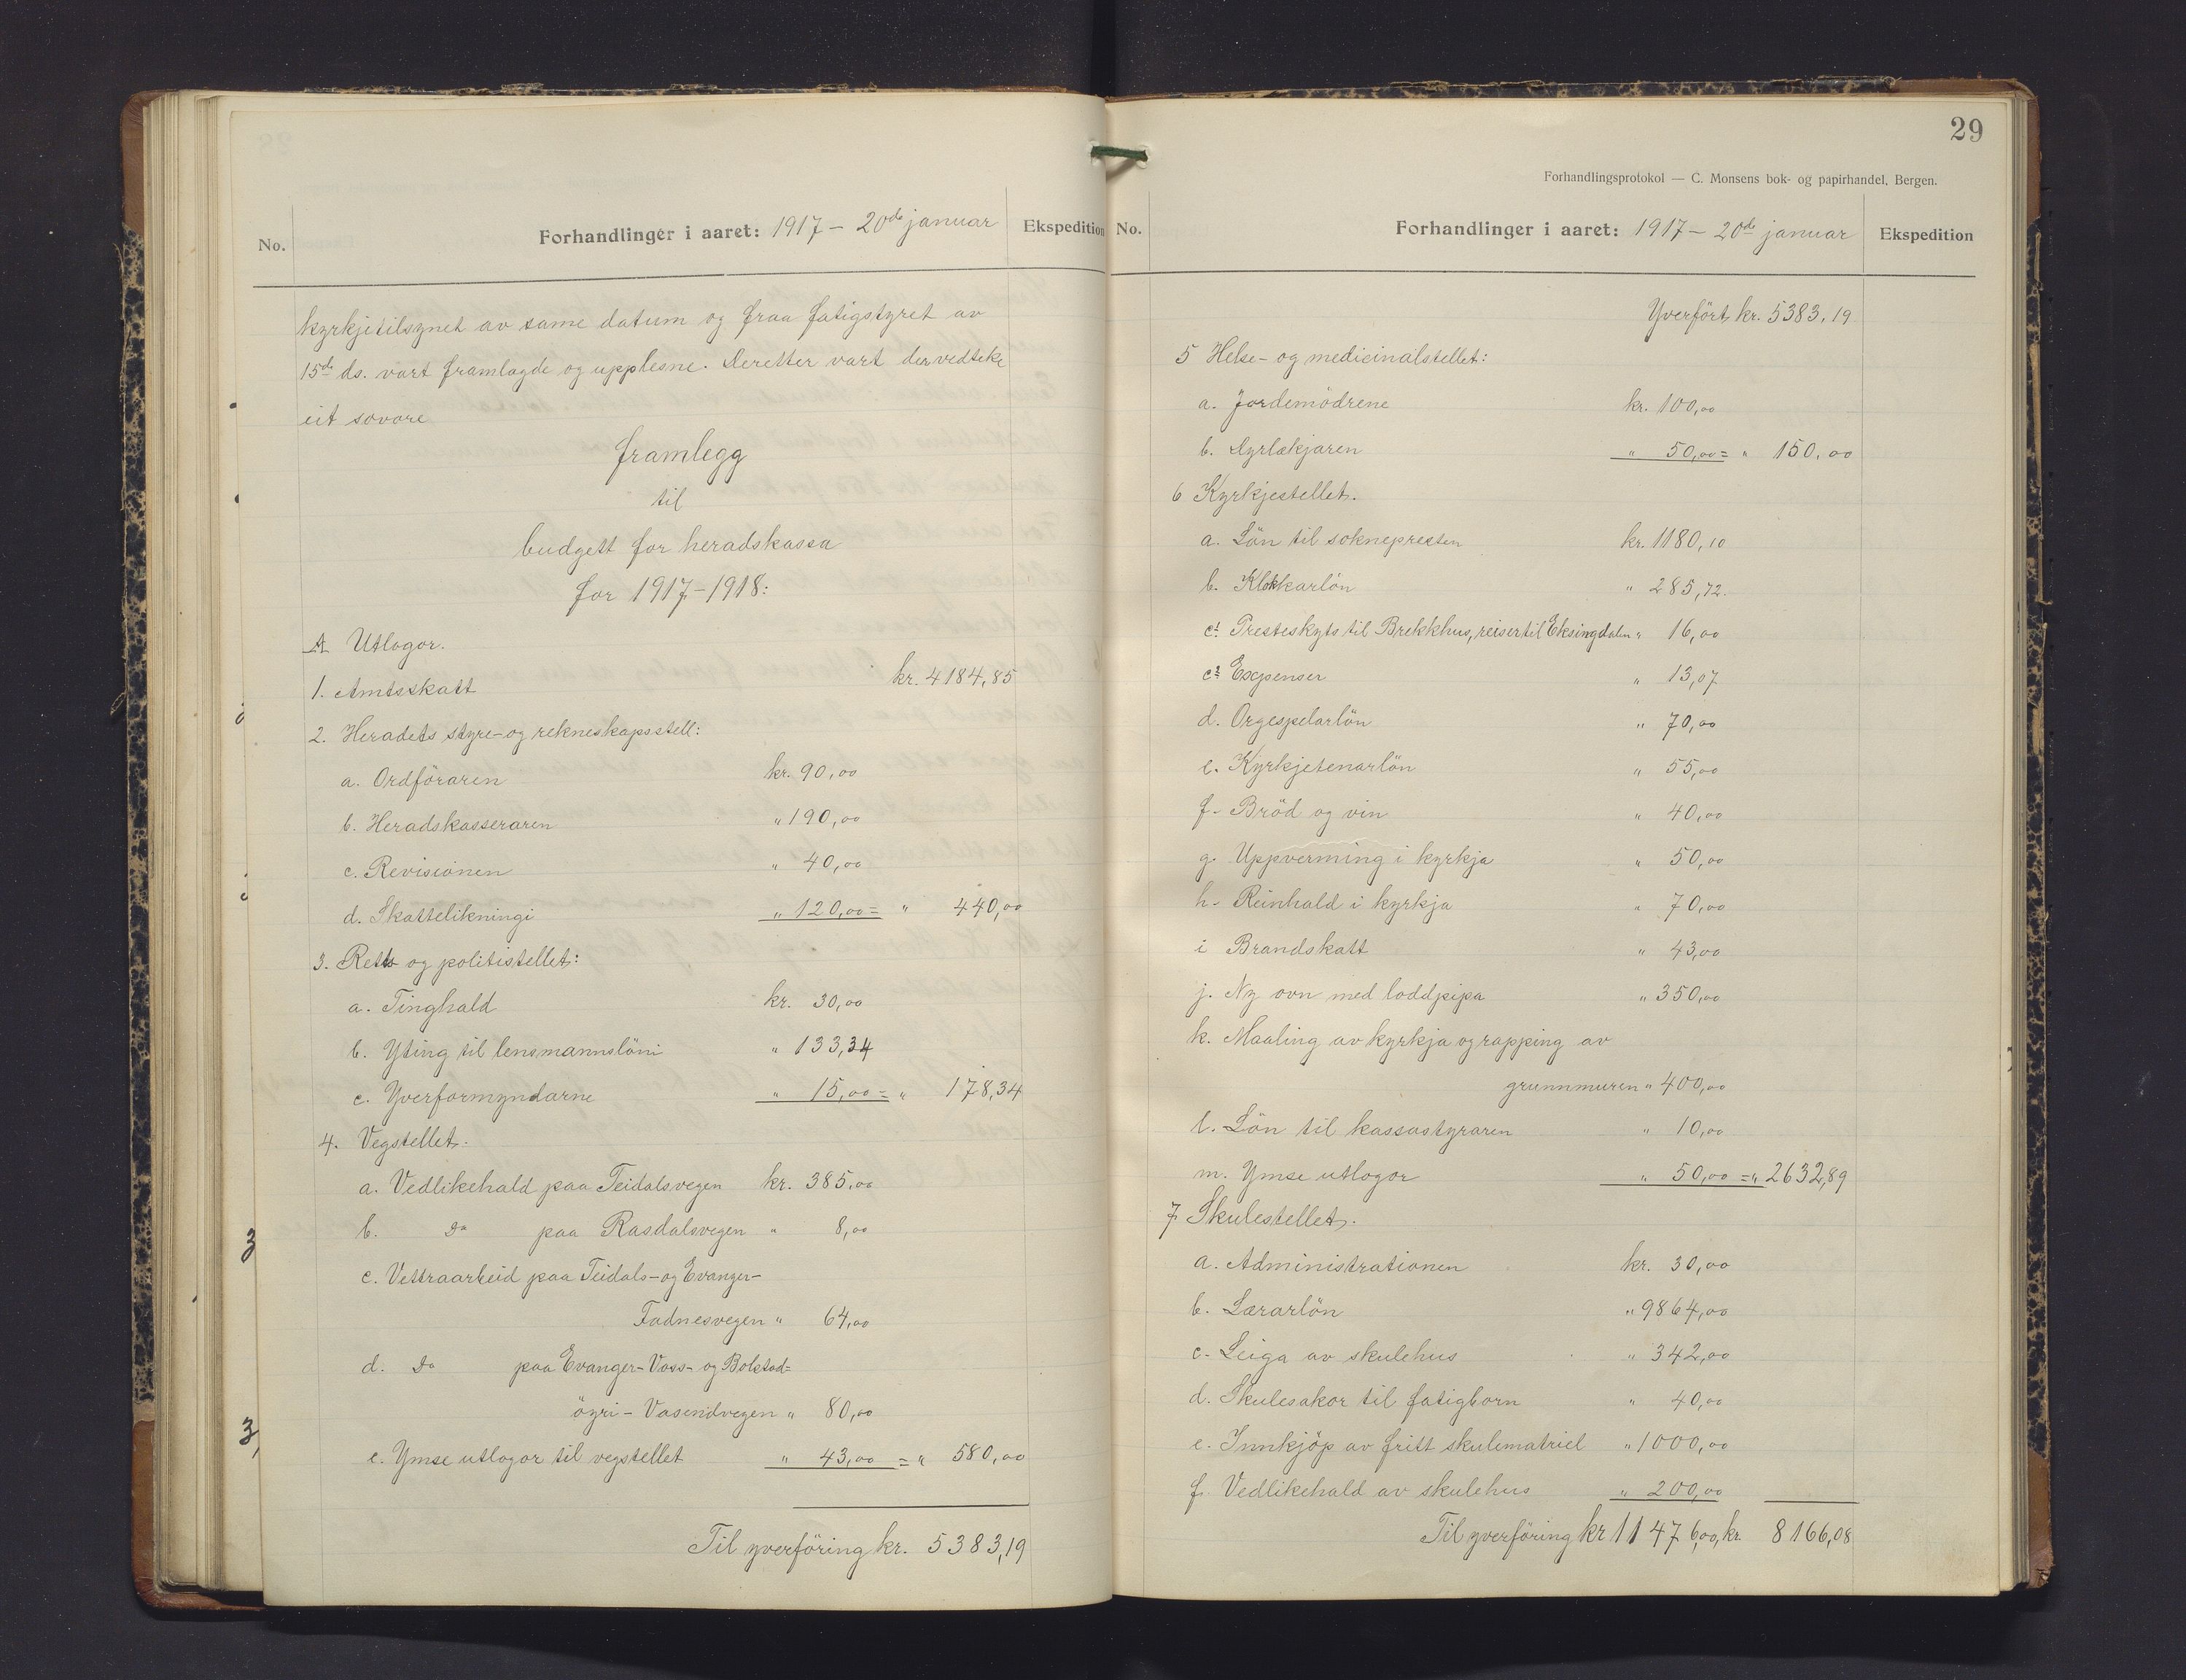 No.
Forhandlinger i aaret: 1917 – 20de januar
Ekspedition
kyrkjetilsynet av same datum og fraa fatigstyret av
15de ds. vart framlagde og upplesne. Deretter vart der vedteke
eit sovore
framlegg
til
budgett for heradskassa
for 1917–1918:
A Utlogor.
1. Amtsskatt kr. 4184,85
2. Heradets styre- og rekneskapsstell:
a. Ordføraren kr. 90,00
b. Heradskasseraren " 190,00
c. Revisionen " 40,00
d. Skattelikningi " 120,00 = " 440,00
3. Retts og politistellet:
a. Tinghald kr. 30,00
b. Yting til lensmannslöni " 133,34
c. Yverformyndarne " 15,00 = " 178,34
4. Vegstellet.
a. Vedlikehald paa Teidalsvegen kr. 385,00
b. Do paa Rasdalsvegen " 8,00
c. Vettraarbeid paa Teidals- og Evanger-
Fadnesvegen " 64,00
d. Do paa Evanger-Voss- og Bolstad=
öyri-Vasendvegen " 80,00
e. Ymse utlogor til vegstellet " 43,00 = " 580,00
Til yverföring kr. 5383,19
29
Forhandlingsprotokol — C. Monsens bok- og papirhandel, Bergen.
No.
Forhandlinger i aaret: 1917 – 20de januar
Ekspedition
Yverfört kr. 5383,19
5 Helse- og medicinalstellet:
a. Jordemödrene kr. 100,00
b. Dyrlækjaren " 50,00 = " 150,00
6 Kyrkjestellet.
a. Lön til soknepresten kr. 1180,10
b. Klokkarlön " 285,72.
c1. Presteskyts til Brekkhus, reiser til Eksingdalen " 16,00
c2 Expenser " 13,07
d. Orgespelarlön " 70,00
e. Kyrkjetenarlön " 55,00
f- Bröd og vin " 40,00
g. Uppverming i kyrkja " 50,00
h- Reinhald i kyrkja " 70,00
i Brandskatt " 43,00
j. Ny ovn med loddpipa " 350,00
k. Maaling av kyrkja og rapping av
grunnmuren " 400,00
l. Lön til kassastyraren " 10,00
m. Ymse utlogor " 50,00 = " 2632,89
7. Skulestellet.
a. Administrationen kr. 30,00
b. Lærarlön " 9864,00
c- Leiga av skulehus " 342,00
d. Skulesakor til fatigborn " 40,00
e. Innkjöp av fritt skulematriel " 1000,00
f. Vedlikehald av skulehus " 200,00
Til yverföring kr 11476,00, kr. 8166,08